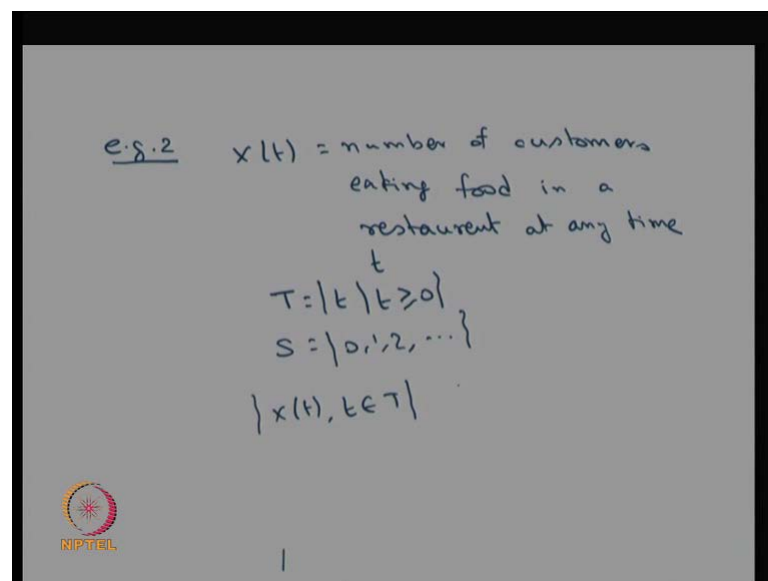 e.g.2 x(t) = number of customers
eating food in a
restaurent at any time
t
T = {t | t ≥ 0}
S = {0, 1, 2, ...}
{x(t), t ∈ T}
NPTEL